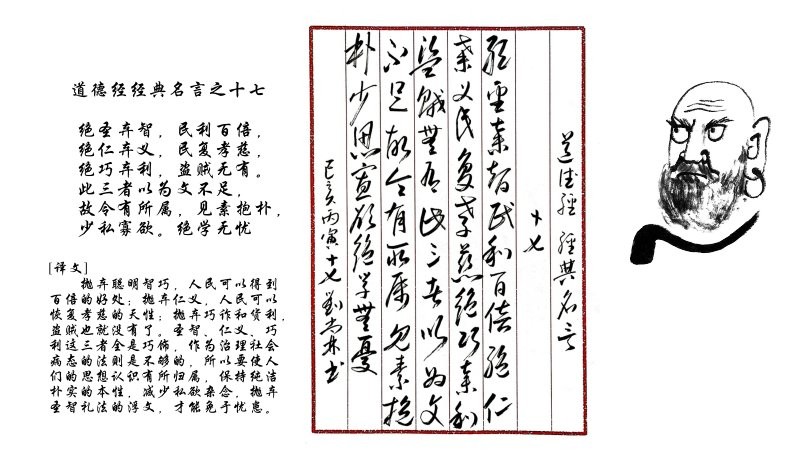 道德经经典名言之十七
绝圣弃智，民利百倍，
绝仁弃义，民复孝慈，
绝巧弃利，盗贼无有。
此三者以为文不足，
故令有所属，见素抱朴，
少私寡欲。绝学无忧
[译文]
抛弃聪明智巧，人民可以得到
百倍的好处；抛弃仁义，人民可以
恢复孝慈的天性；抛弃巧诈和货利，
盗贼也就没有了。圣智、仁义、巧
利这三者全是巧饰，作为治理社会
病态的法则是不够的，所以要使人
们的思想认识有所归属，保持纯洁
朴实的本性，减少私欲杂念，抛弃
圣智礼法的浮文，才能免于忧患。
道德經 經典名言
十七
絕聖棄智民利百倍絕仁
棄义民复孝慈絕巧棄利
盜賊無有此三者以为文
不足故令有所属见素抱
朴少思寡欲絕学無憂
己亥丙寅十七劉尚林书